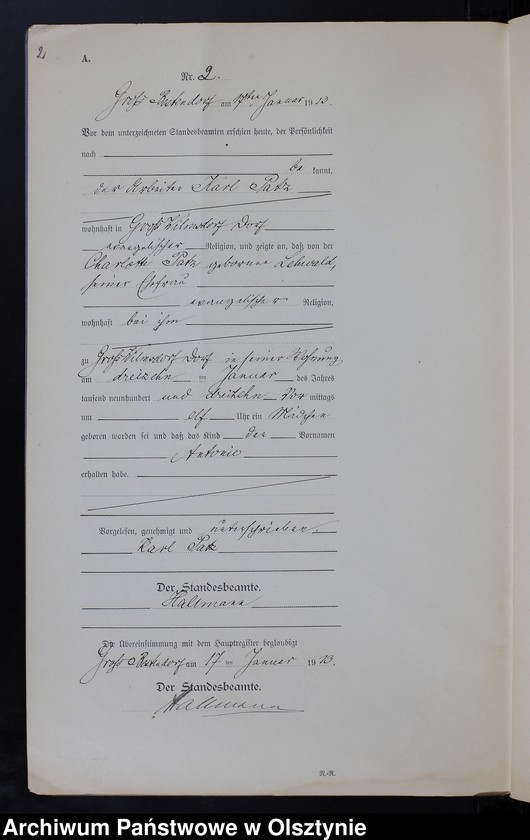 2
A.
Nr. 2.
Groß am 17ten Januar 1913.
Vor dem unterzeichneten Standesbeamten erschien heute, der Persönlichkeit
nach
be kannt,
der Arbeiter Karl Patz
wohnhaft in Groß Wilmsdorf Dorf
evangelischer Religion, und zeigte an, daß von der
Charlotte Patz geborenen Lehwald,
seiner Ehefrau
evangelischer Religion,
wohnhaft bei ihm
zu Groß Wilmsdorf Dorf in seiner Wohnung
am dreizehn ten Januar des Jahres
tausend neunhundert und dreizehn Vor mittags
um elf Uhr ein Mädchen
geboren worden sei und daß das Kind den Vornamen
Antonie
erhalten habe.
Vorgelesen, genehmigt und unterschrieben.
Karl Patz
Der Standesbeamte.
Hallmann
Die Übereinstimmung mit dem Hauptregister beglaubigt
Groß am 17 ten Januar 1913.
Der Standesbeamte.
Hallmann
N.-R.
Archiwum Państwowe w Olsztynie